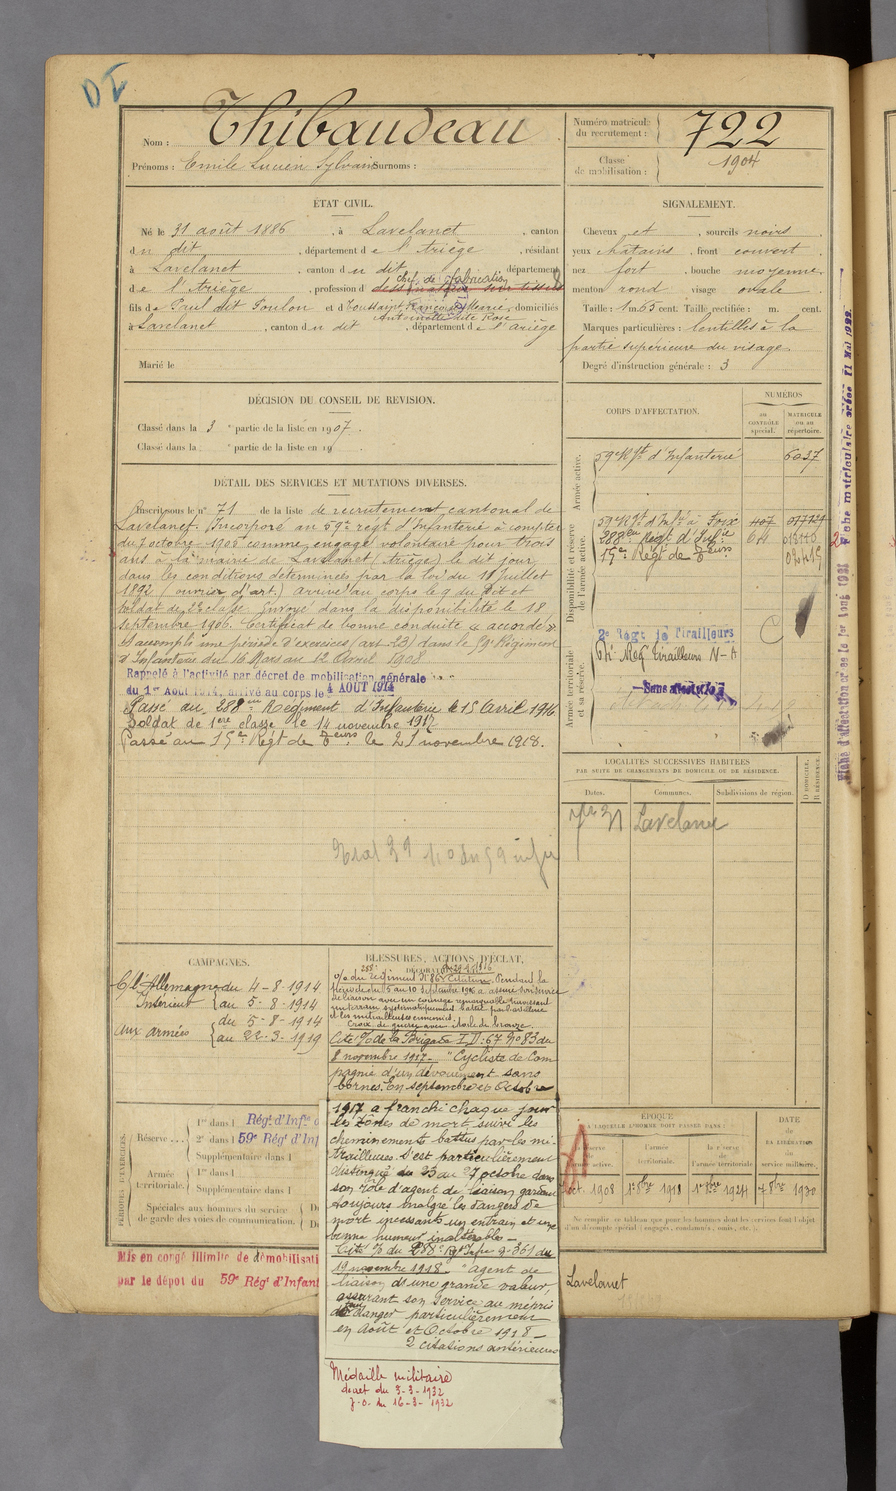 Nom : Thibaudeau
Prénoms : Emile Lucien Sylvain Surnoms :
Numéro matricule du recrutement : 722
Classe de mobilisation : 1904
ÉTAT CIVIL.
Né le 31 août 1886, à Lavelanet, canton
du dit, département de l'Ariège, résidant
à Lavelanet, canton du dit, département
chef de fabrication
de l'Ariège, profession de dessinateur sur tissus
fils de Paul dit Foulon et de Toussaint Françoise Marie, domiciliés
Antoinette dite Rose
à Lavelanet, canton du dit, département de l'Ariège
Marié le
SIGNALEMENT.
Cheveux et, sourcils noirs
yeux chatains, front couvert
nez fort, bouche moyenne
menton rond, visage ovale
Taille : 1m65 cent. Taille rectifiée : m. cent.
Marques particulières : lentilles à la
partie supérieure du visage
Degré d'instruction générale : 3
DÉCISION DU CONSEIL DE REVISION.
Classé dans la 3e partie de la liste en 1907.
Classé dans la e partie de la liste en 19
DÉTAIL DES SERVICES ET MUTATIONS DIVERSES.
Inscrit sous le n° 71 de la liste de recrutement cantonal de
Lavelanet. Incorporé au 59e régt d'Infanterie à compter
du 7 octobre 1905 comme engagé volontaire pour trois
ans à la mairie de Lavelanet (Ariège) le dit jour
dans les conditions déterminées par la loi du 11 Juillet
1892 (ouvrier d'art.) arrivé au corps le 9 du dit et
soldat de 2e classe. Envoyé dans la disponibilité le 18
septembre 1906. Certificat de bonne conduite « accordé »
A accompli une période d'exercices (art. 23) dans le 59e Régiment
d'Infanterie du 16 Mars au 12 Avril 1908
Rappelé à l'activité par décret de mobilisation générale
du 1er Août 1914, arrivé au corps le 4 AOUT 1914
Passé au 288me Régiment d'Infanterie le 15 Avril 1916
Soldat de 1ère classe le 14 novembre 1917
Passé au 15e Régt de Teurs le 21 novembre 1918.
CORPS D'AFFECTATION.
NUMÉROS
AU CONTRÔLE SPÉCIAL.
MATRICULE ou au répertoire.
Armée active.
59e Rgt d'Infanterie 6037
Disponibilité et réserve de l'armée active.
59e Rgt d'Infie à Foix 407
288me Régt d'Infie 64
15e Régt de Teurs
Armée territoriale et sa réserve.
2e Régt de Tirailleurs
Rég Tirailleurs N-A
Sans affectation
LOCALITÉS SUCCESSIVES HABITÉES
PAR SUITE DE CHANGEMENTS DE DOMICILE OU DE RÉSIDENCE.
Dates. Communes. Subdivisions de région. D DOMICILE. R RÉSIDENCE.
Lavelanet
CAMPAGNES.
C/ l'Allemagne du 4-8-1914
Intérieur au 5-8-1914
aux armées du 5-8-1914
au 22-3-1919
BLESSURES, ACTIONS D'ÉCLAT,
DÉCORATIONS
Citation. Pendant la
période du 5 au 10 septembre 1916 a assuré son service
de liaison avec un courage remarquable traversant
un terrain systématiquement battu par l'artillerie
et les mitrailleuses ennemies
Croix de guerre avec étoile de bronze
Cité o/ de la Brigade I.D. 67 N°83 du
8 novembre 1917. "Cycliste de Com
pagnie d'un dévouement sans
bornes. En septembre et Octobre
1917 a franchi chaque jour
les zônes de mort, suivi les
cheminements battus par les mi-
trailleuses s'est particulièrement
distingué du 23 au 27 octobre dans
son rôle d'agent de liaison gardant
toujours malgré les dangers de
mort incessants un entrain et une
bonne humeur inaltérables.
Cité o/ du 288e Rgt Infie n° 361 du
19 novembre 1918. "agent de
liaison d'une grande valeur,
assurant son service au mépris
du danger particulièrement
en Août et Octobre 1918 -
2 citations antérieures
Médaille militaire
décret du 3-3-1932
J.O. du 16-3-1932
PÉRIODES D'EXERCICES.
Réserve...
1re dans l Régt d'Infie
2e dans l 59e Régt d'Inf
Supplémentaire dans l
Armée territoriale.
1re dans l
Supplémentaire dans l
Spéciales aux hommes du service de garde des voies de communication.
ÉPOQUE
À LAQUELLE L'HOMME DOIT PASSER DANS :
la réserve de l'armée active.
l'armée territoriale.
la réserve de l'armée territoriale
DATE de LA LIBÉRATION du service militaire.
oct. 1908 1er 8bre 1918 1er 8bre 1924 7 8bre 1930
Ne remplir ce tableau que pour les hommes dont les services font l'objet
d'un décompte spécial (engagés, condamnés, omis, etc.).
Mis en congé illimité de démobilisati
par le dépôt du 59e Régt d'Infant
Lavelanet